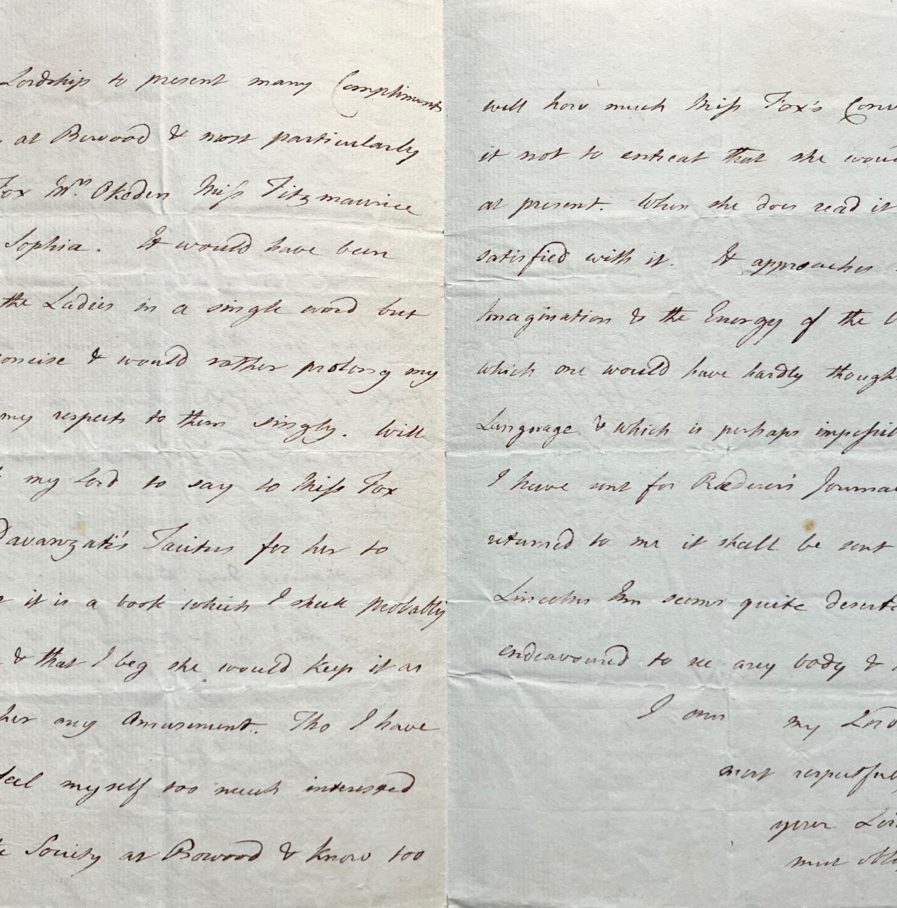 Lordship to present many Compliments
at Bowood & most particularly
Fox Mrs. Okeden Miss Fitzmaurice
Sophia. It would have been
the Ladies in a single word but
concise & would rather prolong my
my respects to them singly. Will
my Lord to say to Miss Fox
Davanzati's Tacitus for her to
it is a book which I shall probably
& that I beg she would keep it as
her any Amusement. Tho I have
feel myself too much interested
Society at Bowood & know too
will how much Miss Fox's
it not to entreat that she
at present. When she does read it
satisfied with it. It approaches
Imagination & the Energy of the
which one would have hardly
Language & which is perhaps
I have sent for Rœderer's
returned to me it shall be sent
Lincolns Inn seems quite
endeavoured to see any body &
I am my
most
your
most